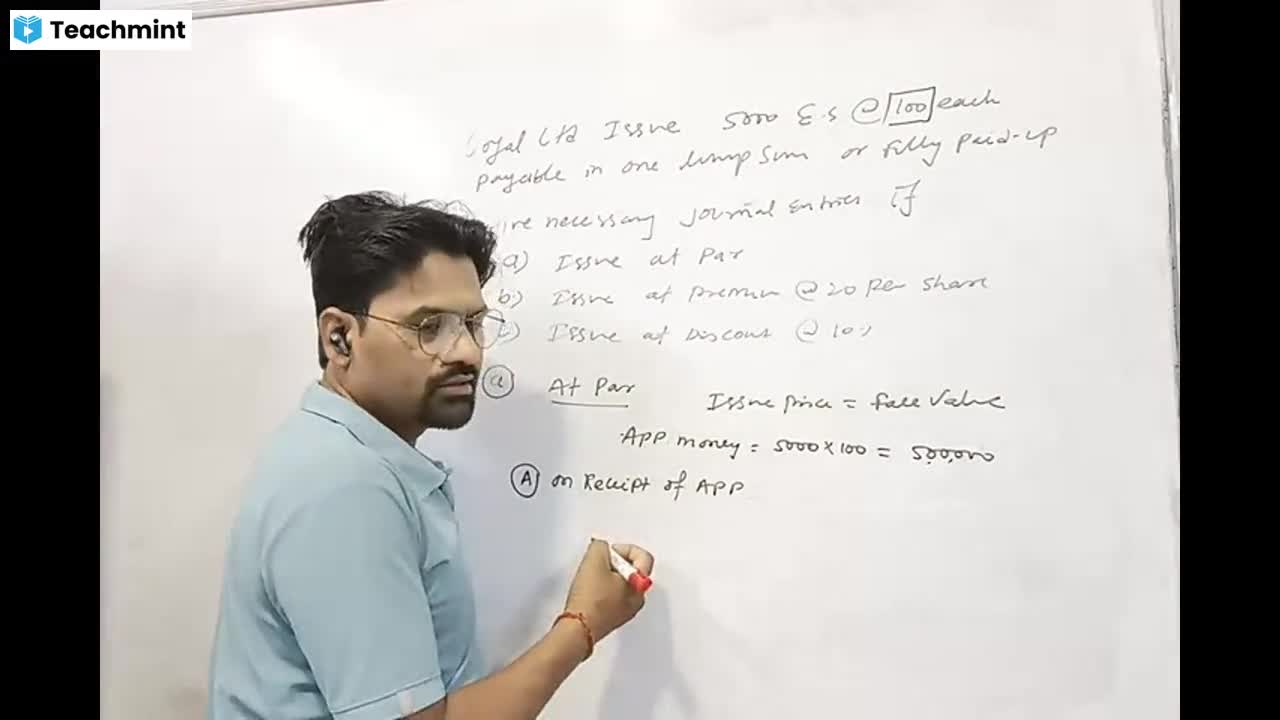 Teachmint
Ltd Issue 5000 E.S @ 100 each
payable in one lump sum or fully paid-up
necessary Journal entries If
a) Issue at Par
b.) Issue at Premium @ 20 per share
Issue at Discount @ 10%
a At Par Issue price = face value
APP money = 5000 x 100 = 5,00,000
A on Receipt of APP